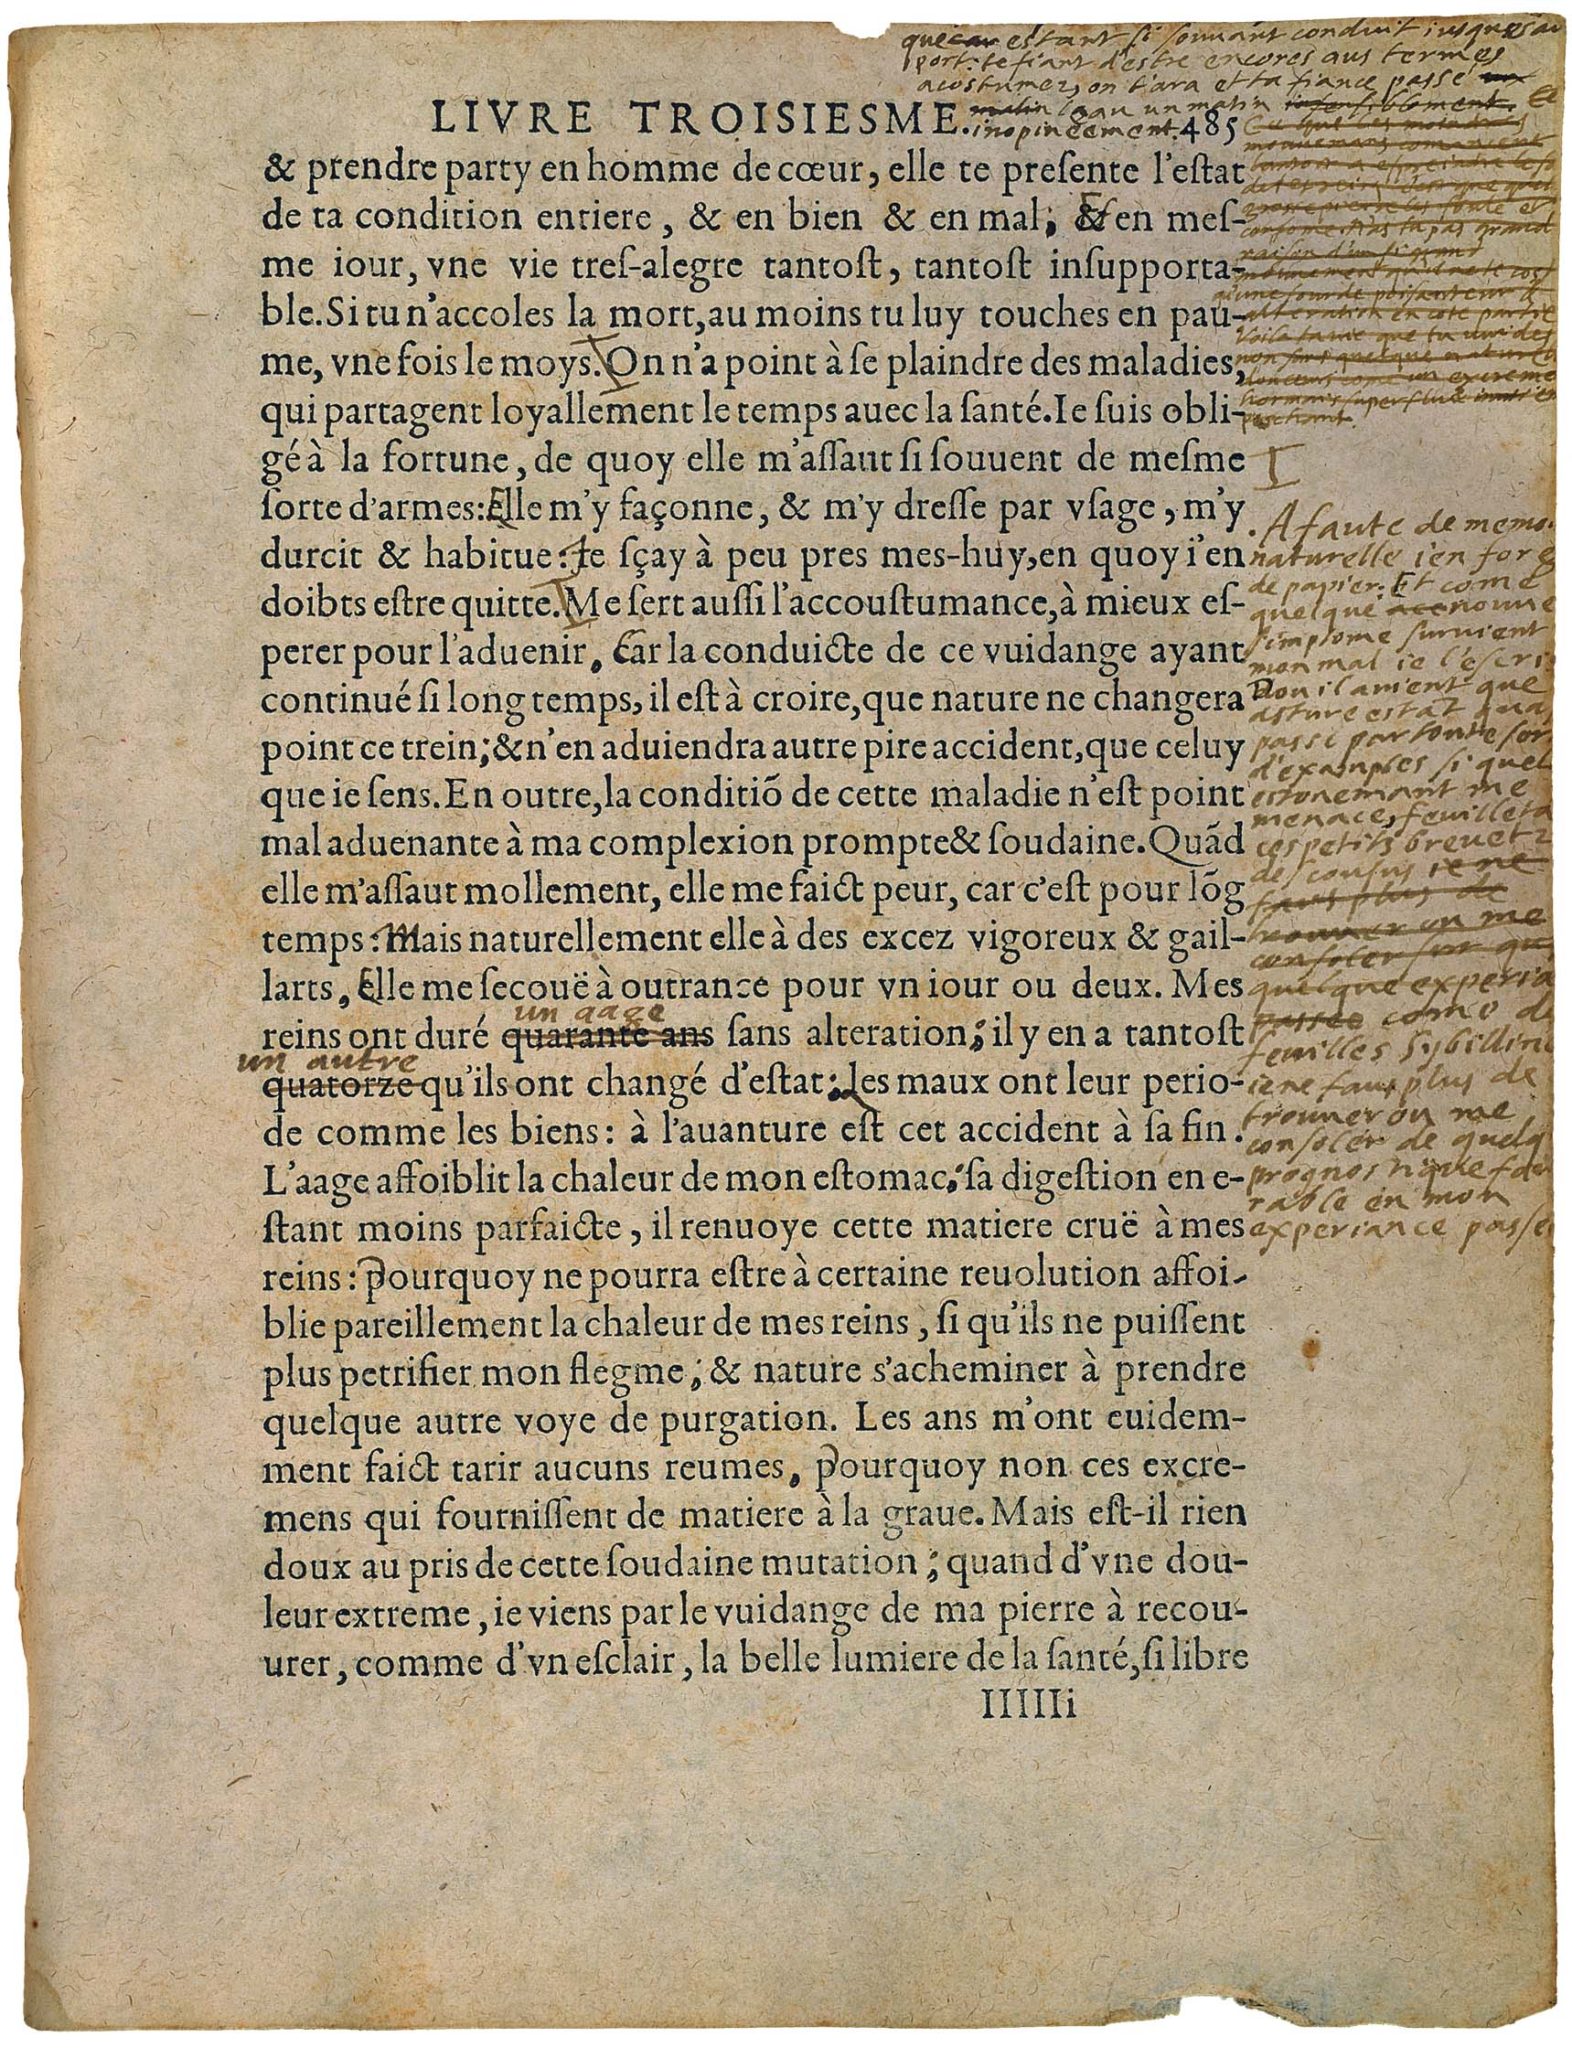 que car estant si souvant conduit iusques au
port: te fiant d'estre encores aus termes
acostumez, on t'ara et ta fiance passé un
matin l'eau un matin insensiblement. Et
inopineement.
LIVRE TROISIESME. 485
& prendre party en homme de cœur, elle te preſente l'eſtat
de ta condition entiere, & en bien & en mal; Et en meſ-
me iour, vne vie treſ-alegre tantoſt, tantoſt inſupporta-
ble. Si tu n'accoles la mort, au moins tu luy touches en pau-
me, vne fois le moys. On n'a point à ſe plaindre des maladies,
qui partagent loyallement le temps auec la ſanté. Ie ſuis obli-
gé à la fortune, de quoy elle m'aſſaut ſi ſouuent de meſme
ſorte d'armes: Elle m'y façonne, & m'y dreſſe par vſage, m'y
durcit & habitue: Je ſçay à peu pres mes-huy, en quoy i'en
doibts eſtre quitte. Me ſert auſſi l'accouſtumance, à mieux eſ-
perer pour l'aduenir. Car la conduicte de ce vuidange ayant
continué ſi long temps, il eſt à croire, que nature ne changera
point ce trein; & n'en aduiendra autre pire accident, que celuy
que ie ſens. En outre, la conditiõ de cette maladie n'eſt point
mal aduenante à ma complexion prompte & ſoudaine. Quãd
elle m'aſſaut mollement, elle me faict peur, car c'eſt pour lõg
temps: Mais naturellement elle à des excez vigoreux & gail-
larts, Elle me ſecouë à outrance pour vn iour ou deux. Mes
un aage
reins ont duré quarante ans ſans alteration; il y en a tantoſt
un autre
quatorze qu'ils ont changé d'eſtat: les maux ont leur perio-
de comme les biens: à l'auanture eſt cet accident à ſa fin.
L'aage affoiblit la chaleur de mon eſtomac; ſa digeſtion en e-
ſtant moins parfaicte, il renuoye cette matiere cruë à mes
reins: Pourquoy ne pourra eſtre à certaine reuolution affoi-
blie pareillement la chaleur de mes reins, ſi qu'ils ne puiſſent
plus petrifier mon flegme; & nature s'acheminer à prendre
quelque autre voye de purgation. Les ans m'ont euidem-
ment faict tarir aucuns reumes, Pourquoy non ces excre-
mens qui fourniſſent de matiere à la graue. Mais eſt-il rien
doux au pris de cette ſoudaine mutation; quand d'vne dou-
leur extreme, ie viens par le vuidange de ma pierre à recou-
urer, comme d'vn eſclair, la belle lumiere de la ſanté, ſi libre
IIIIIi
A faute de memo
naturelle i'en forg
de papier. Et come
quelque nouve
simptome survient
mon mal ie l'escri
Dou il avient que
asture estat
passé par toute sor
d'examples si quel
estonemant me
menace, feuilleta
ces petits brevetz
descousus ie ne
faus plus de
trouver ou me
consoler sur qu
quelque experia
passee come de
feuilles Sybillin
ie ne faus plus de
trouver ou me
consoler de quelq
prognostique favo
rable en mon
experiance passe